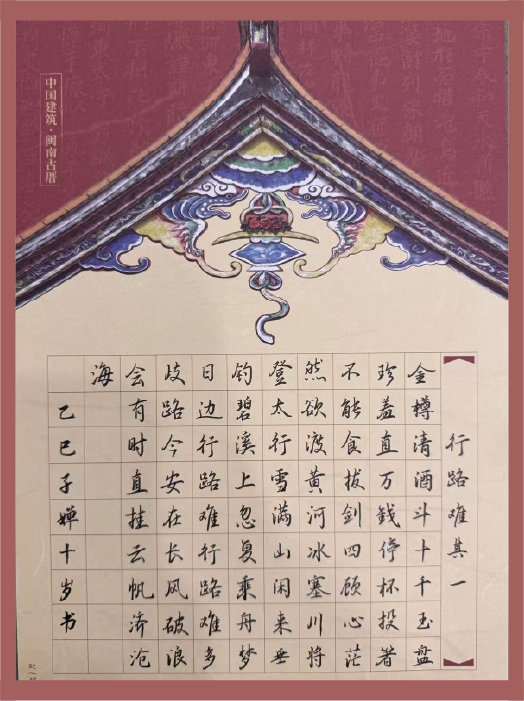 中国建筑·闽南古厝
行路难其一
金樽清酒斗十千玉盘
珍羞直万钱停杯投箸
不能食拔剑四顾心茫
然欲渡黄河冰塞川将
登太行雪满山闲来垂
钓碧溪上忽复乘舟梦
日边行路难行路难多
歧路今安在长风破浪
会有时直挂云帆济沧
海
乙巳子婵十岁书